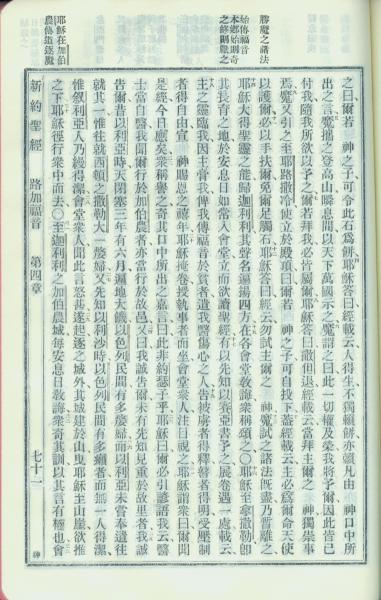 勝魔之諸法
始傳福音
本鄉始則奇
之終則厭之
耶穌在加伯
農傳道逐魔
之曰爾若　神之子可令此石爲餅耶穌答曰經載云人得生不獨賴餅亦賴凡由　神口中所
出之言魔攜之登高山瞬息間以天下萬國示之魔謂之曰此一切權及榮我將予爾因此皆已
付我隨我所欲以予之爾若拜我必皆屬爾耶穌答曰撒但退經載云當拜主爾之　神獨崇事
焉魔又引之至耶路撒冷使立於殿頂曰爾若　神之子可自投下蓋經載云主必爲爾命天使
以護爾必以手扶爾免爾足觸石耶穌答曰經云勿試主爾之　神魔試之諸法既盡乃暫離之
耶穌大得聖靈之能歸迦利利其聲名遍揚四方在各會堂敎誨衆稱頌之○耶穌至拿撒勒卽
其長育之地於安息日如常入會堂立而欲讀聖經有以先知以賽亞書予之展卷遇一處載云
主之靈臨我因主膏我俾我傳福音於貧者遣我醫傷心之人告被虜者得釋瞽者得明受壓制
者得自由宣　神賜恩之禧年耶穌掩卷授執事者而坐會堂衆人注目視之耶穌謂衆曰爾聞
是經今日應矣衆稱譽之奇其口中所出之嘉言曰此非約瑟子乎耶穌曰爾必引諺語我云醫
士當自醫我聞爾行於加伯農者亦當行於故邑又曰我誠告爾未有先知見重於故里者我
告爾昔以利亞時天閉塞三年有六月遍地大饑以色列民間有多嫠婦而以利亞未嘗奉遣往
就其一惟往就西頓之撒勒大一嫠婦又先知以利沙時以色列民間有多癩者而無一人得潔
惟敘利亞人乃縵得潔會堂衆人聞此言怒甚遂起逐之城外其城建於山曳耶穌至山崖欲推
之下耶穌徑行衆中而去○至迦利利之加伯農城每安息日敎誨衆奇其訓以其言有權也會
新約聖經　路加福音　第四章　七十一　神